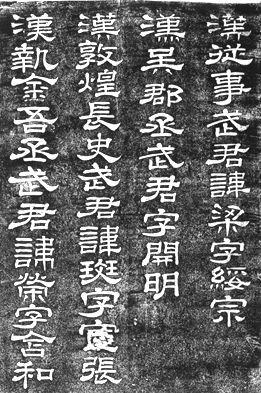 漢従事武君諱梁字綏宗
漢吳郡丞武君字開明
漢敦煌長史武君諱斑字宣張
漢執金吾丞武君諱榮字含和